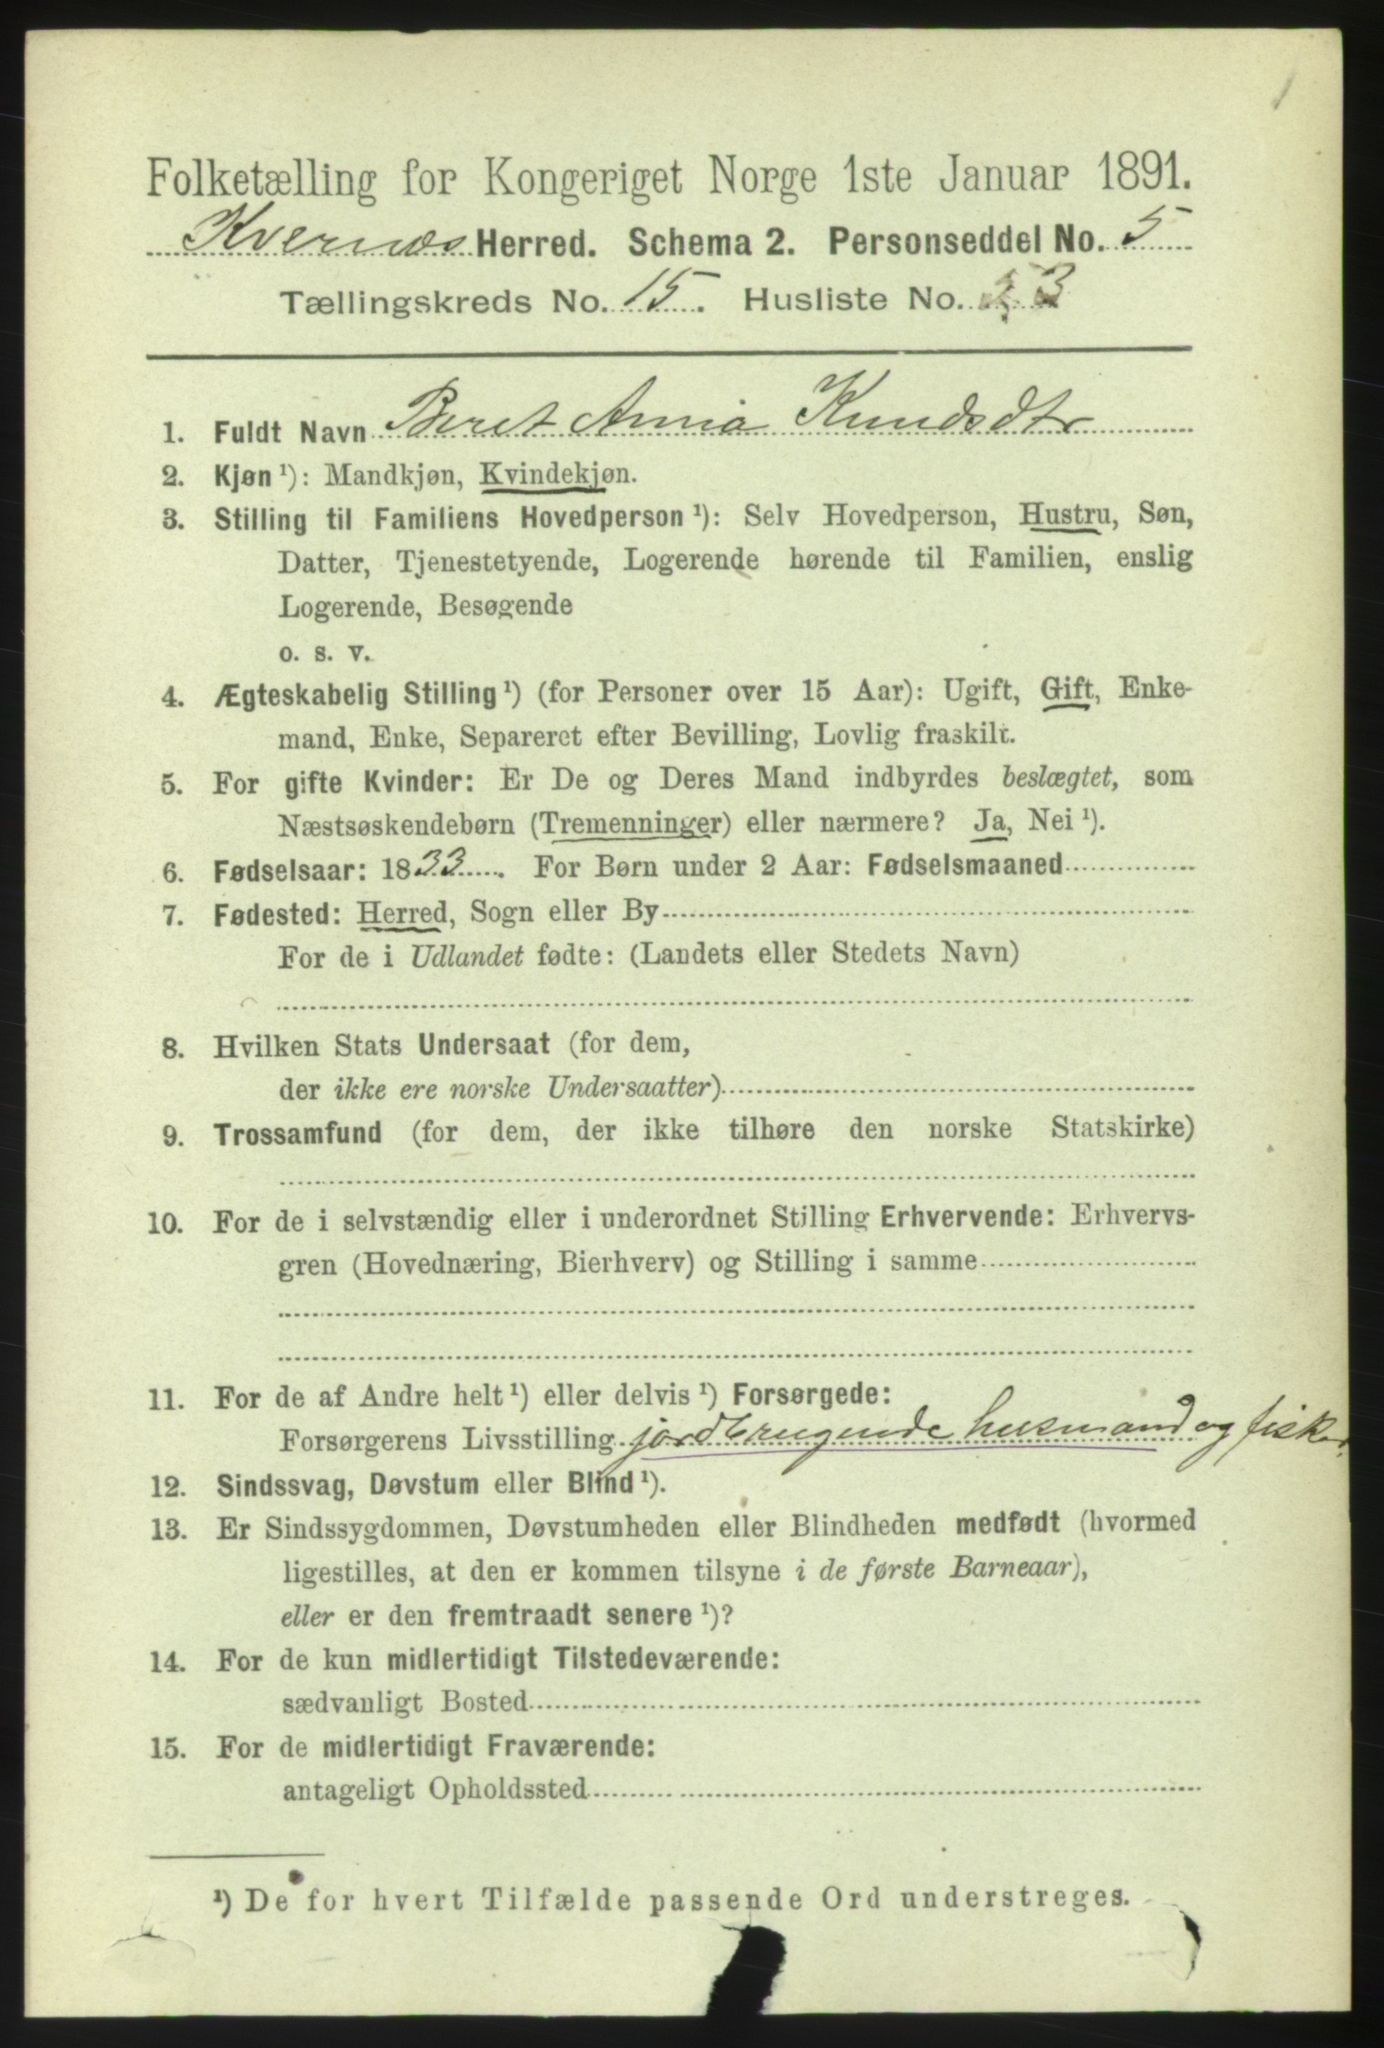 Folketælling for Kongeriget Norge 1ste Januar 1891.
Kvernæs Herred. Schema 2. Personseddel No. 5
Tællingskreds No. 15. Husliste No. 23
1. Fuldt Navn Beret Anna Knudsdtr
2. Kjøn ¹): Mandkjøn, Kvindekjøn.
3. Stilling til Familiens Hovedperson ¹): Selv Hovedperson, Hustru, Søn,
Datter, Tjenestetyende, Logerende hørende til Familien, enslig
Logerende, Besøgende
o. s. v.
4. Ægteskabelig Stilling ¹) (for Personer over 15 Aar): Ugift, Gift, Enke-
mand, Enke, Separeret efter Bevilling, Lovlig fraskilt.
5. For gifte Kvinder: Er De og Deres Mand indbyrdes beslægtet, som
Næstsøskendebørn (Tremenninger) eller nærmere? Ja, Nei ¹).
6. Fødselsaar: 1833. For Børn under 2 Aar: Fødselsmaaned
7. Fødested: Herred, Sogn eller By
For de i Udlandet fødte: (Landets eller Stedets Navn)
8. Hvilken Stats Undersaat (for dem,
der ikke ere norske Undersaatter)
9. Trossamfund (for dem, der ikke tilhøre den norske Statskirke)
10. For de i selvstændig eller i underordnet Stilling Erhvervende: Erhvervs-
gren (Hovednæring, Bierhverv) og Stilling i samme
11. For de af Andre helt ¹) eller delvis ¹) Forsørgede:
Forsørgerens Livsstilling jordbrugende husmand og fisker.
12. Sindssvag, Døvstum eller Blind ¹).
13. Er Sindssygdommen, Døvstumheden eller Blindheden medfødt (hvormed
ligestilles, at den er kommen tilsyne i de første Barneaar),
eller er den fremtraadt senere ¹)?
14. For de kun midlertidigt Tilstedeværende:
sædvanligt Bosted
15. For de midlertidigt Fraværende:
antageligt Opholdssted
¹) De for hvert Tilfælde passende Ord understreges.